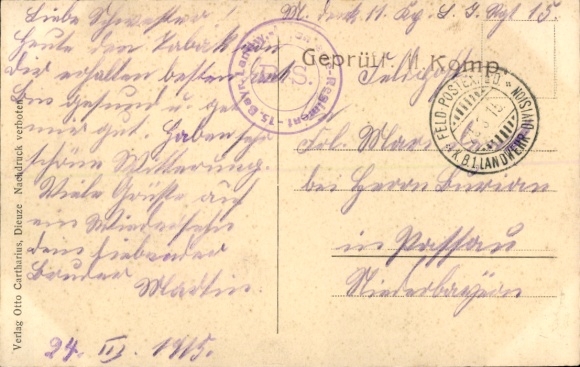 Liebe Schwester!
Heute den Tabak von
Dir erhalten besten Dank
Bin gesund und geht
mir gut. Haben sehr
schöne Witterung
Viele Grüße auf
ein Wiedersehn
dein liebender
Bruder
Martin
24. III. 1915.
M. 11. Kp. L. I. Rgt 15.
Geprüft 11. Komp.
Feldpost
15. Bayr. Landw. Regiment
B.S.
FELD-POSTEXPED.
15
d. K. B. 1. LANDWEHR-DIVISION
Frl. Marie
bei Herrn Burian
in Passau
Niederbayern
Verlag Otto Cartharius, Dieuze Nachdruck verboten